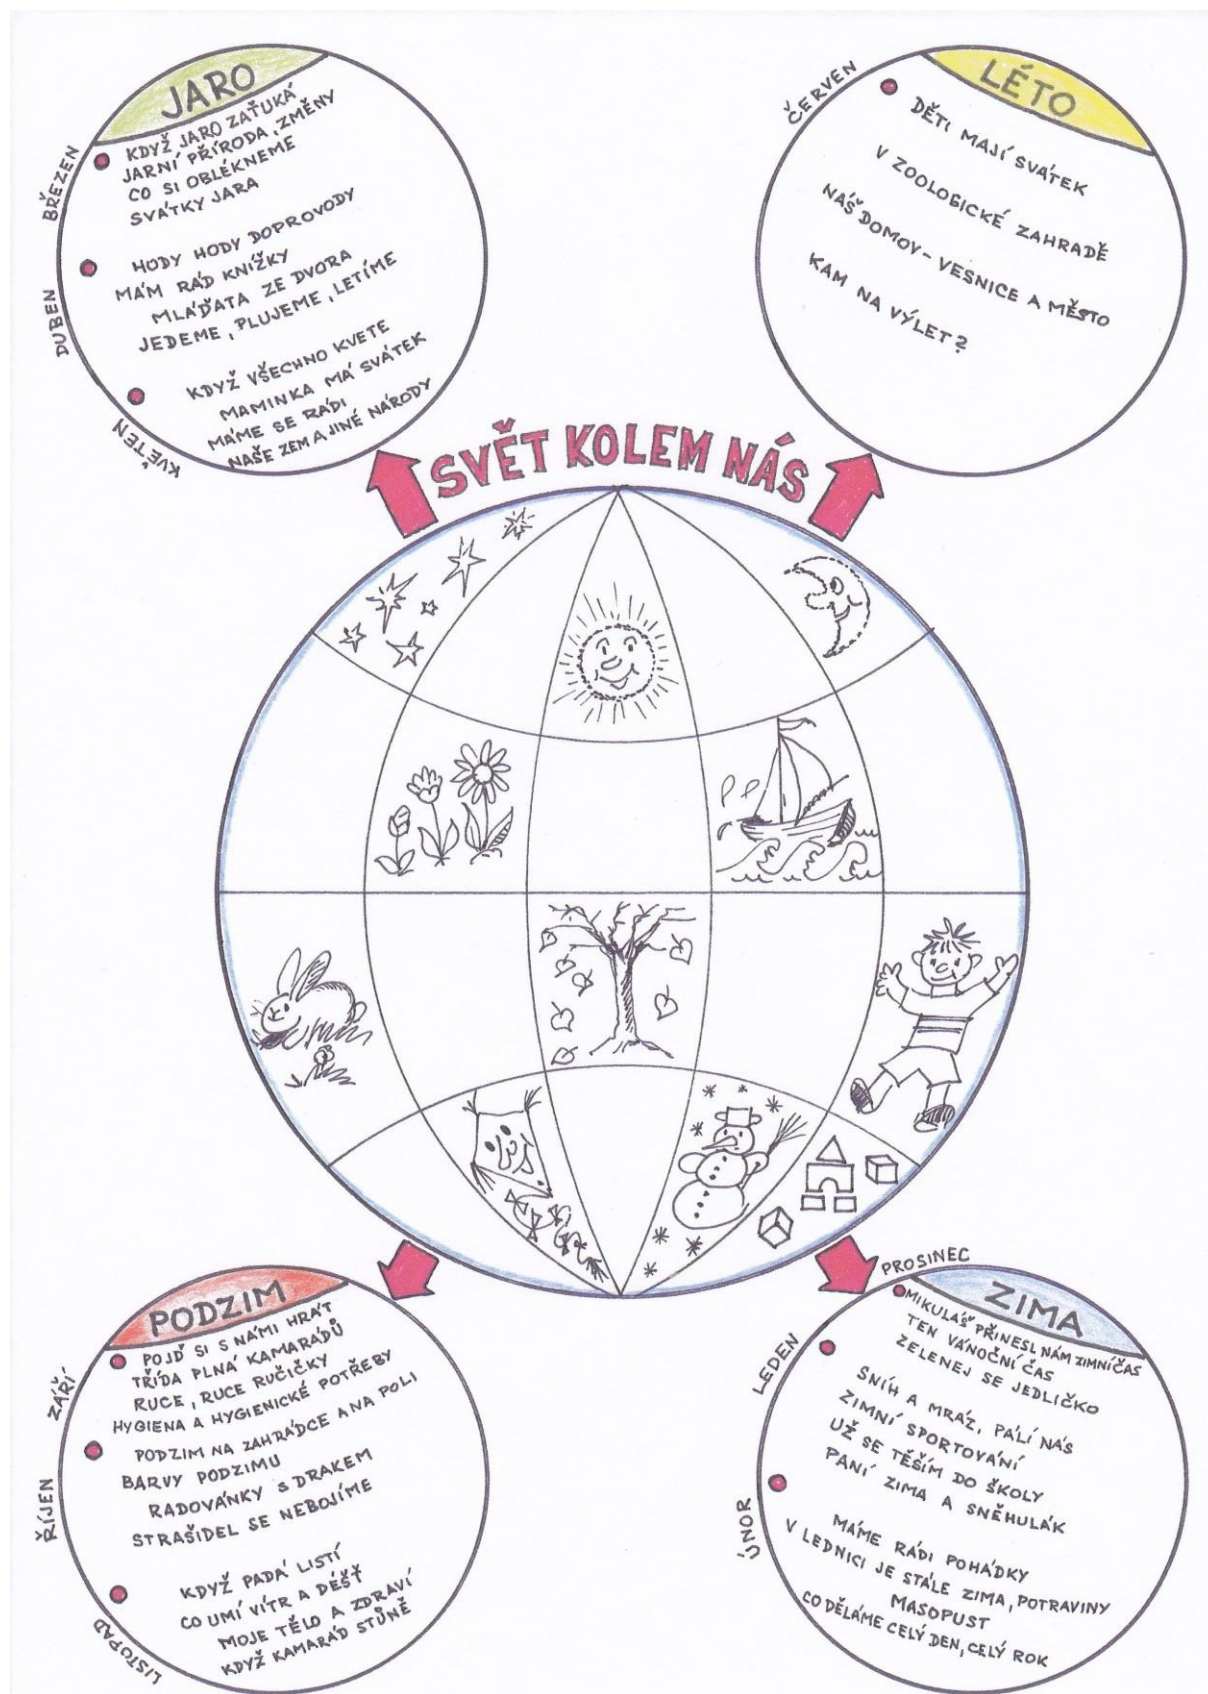 JARO
BŘEZEN
KDYŽ JARO ZAŤUKÁ
JARNÍ PŘÍRODA, ZMĚNY
CO SI OBLÉKNEME
SVÁTKY JARA
DUBEN
HODY HODY DOPROVODY
MÁM RÁD KNÍŽKY
MLÁĎATA ZE DVORA
JEDEME, PLUJEME, LETÍME
KVĚTEN
KDYŽ VŠECHNO KVETE
MAMINKA MÁ SVÁTEK
MÁME SE RÁDI
NAŠE ZEM A JINÉ NÁRODY
LÉTO
ČERVEN
DĚTI MAJÍ SVÁTEK
V ZOOLOGICKÉ ZAHRADĚ
NÁŠ DOMOV - VESNICE A MĚSTO
KAM NA VÝLET?
SVĚT KOLEM NÁS
PODZIM
ZÁŘÍ
POJĎ SI S NÁMI HRÁT
TŘÍDA PLNÁ KAMARÁDŮ
RUCE, RUCE RUČIČKY
HYGIENA A HYGIENICKÉ POTŘEBY
ŘÍJEN
PODZIM NA ZAHRÁDCE A NA POLI
BARVY PODZIMU
RADOVÁNKY S DRAKEM
STRAŠIDEL SE NEBOJÍME
LISTOPAD
KDYŽ PADÁ LISTÍ
CO UMÍ VÍTR A DÉŠŤ
MOJE TĚLO A ZDRAVÍ
KDYŽ KAMARÁD STŮNĚ
ZIMA
PROSINEC
MIKULÁŠ PŘINESL NÁM ZIMNÍ ČAS
TEN VÁNOČNÍ ČAS
ZELENEJ SE JEDLIČKO
LEDEN
SNÍH A MRÁZ, PÁLÍ NÁS
ZIMNÍ SPORTOVÁNÍ
UŽ SE TĚŠÍM DO ŠKOLY
PANÍ ZIMA A SNĚHULÁK
ÚNOR
MÁME RÁDI POHÁDKY
V LEDNICI JE STÁLE ZIMA, POTRAVINY
MASOPUST
CO DĚLÁME CELÝ DEN, CELÝ ROK